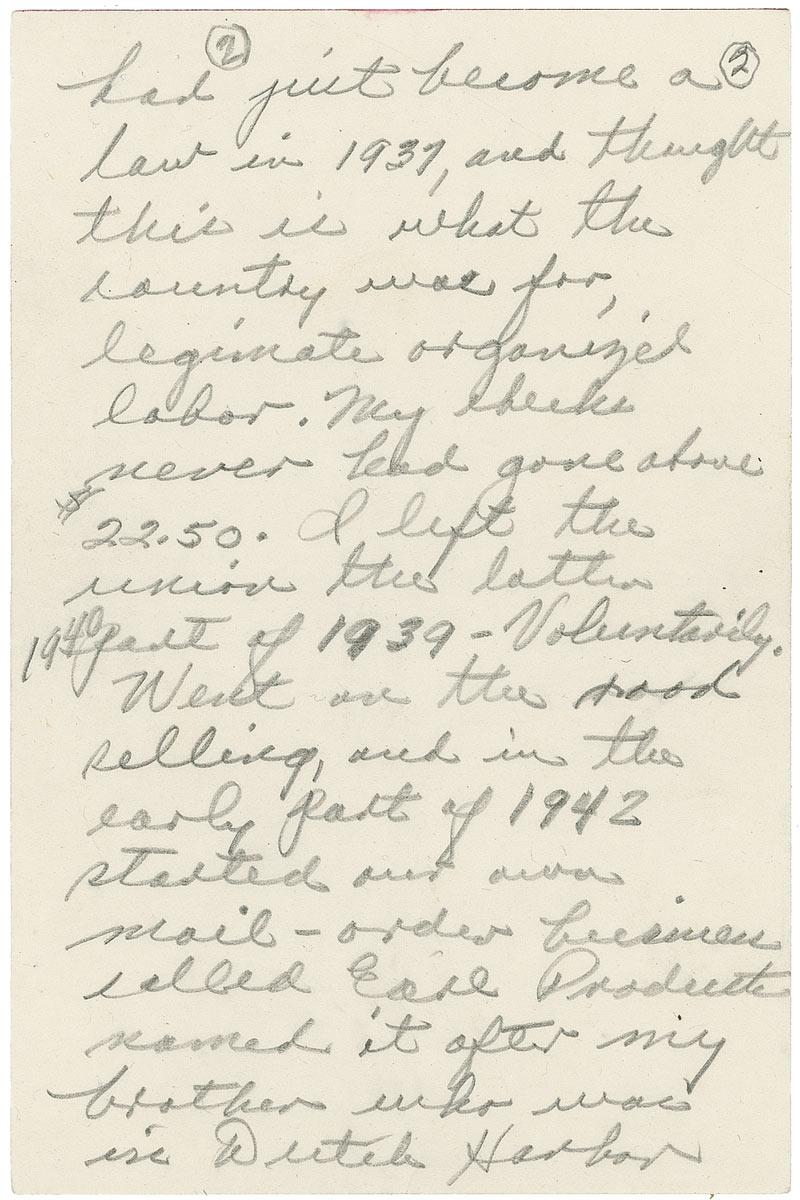 ② ②
had just become a
law in 1937, and thought
this is what the
country was for,
legimate organized
labor. My checks
never had gone above
$22.50. I left the
union the latter
1940 part of 1939 - Voluntarily.
Went on the road
selling, and in the
early part of 1942
started our own
mail-order business
called Earl Products
named it after my
brother who was
in Dutch Harbor